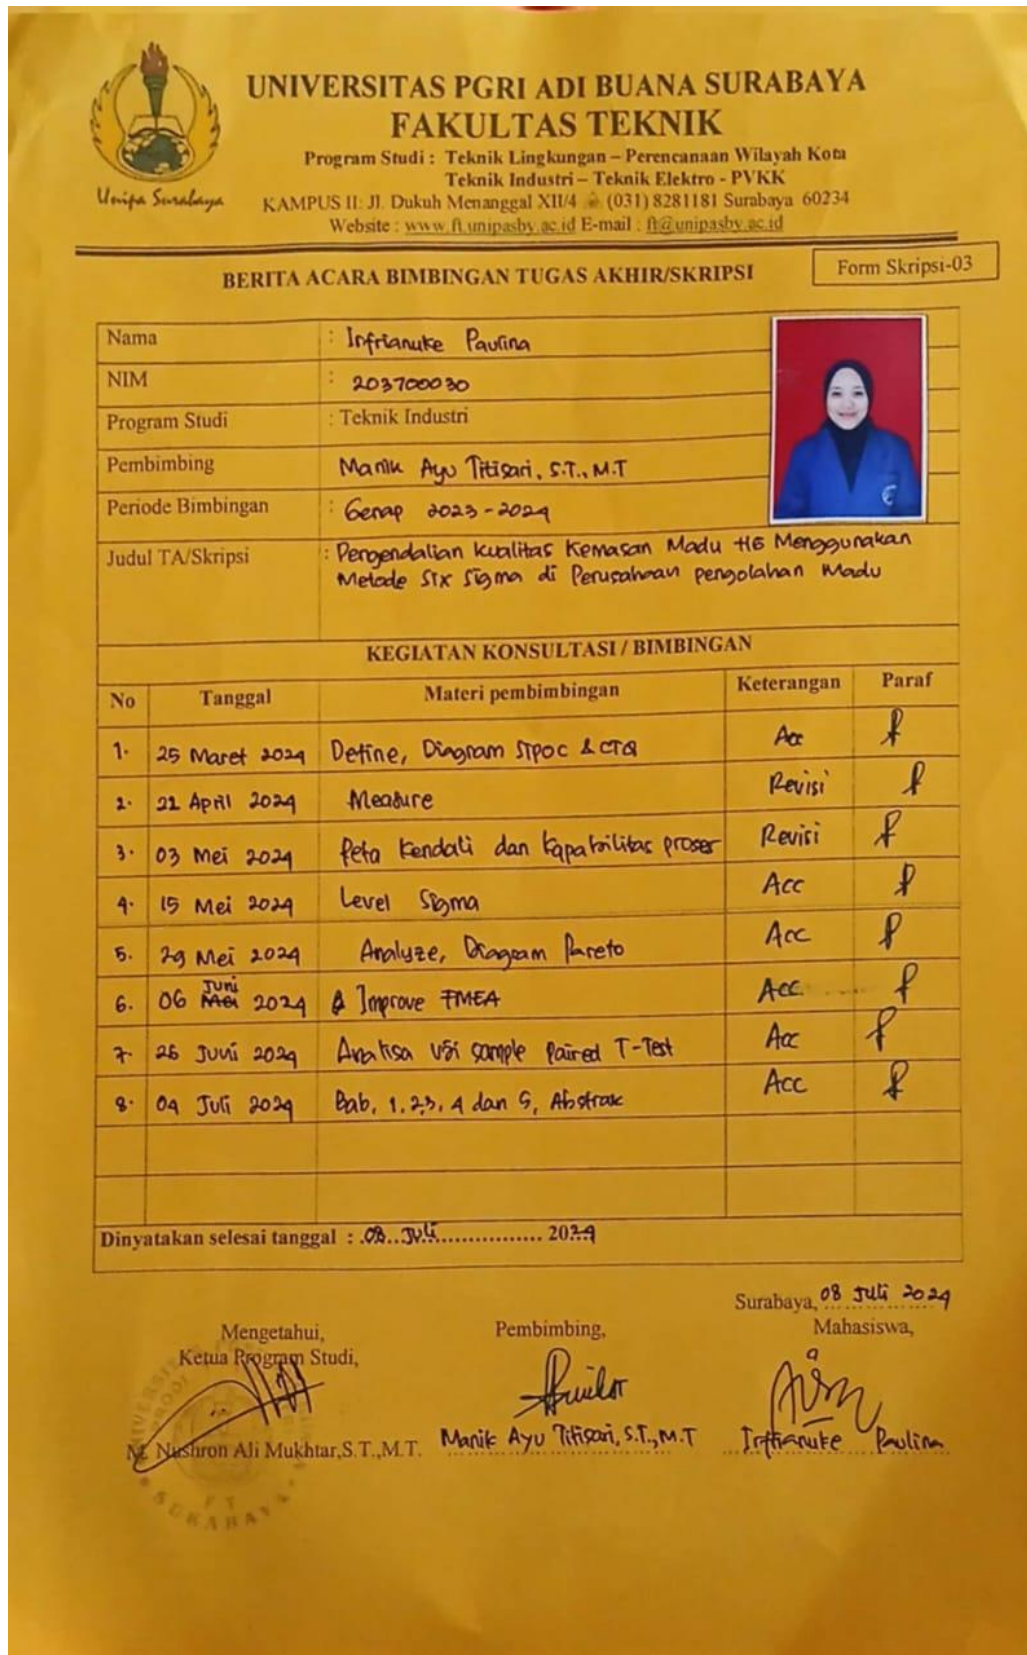 UNIVERSITAS PGRI ADI BUANA SURABAYA
FAKULTAS TEKNIK
Program Studi : Teknik Lingkungan – Perencanaan Wilayah Kota
Teknik Industri – Teknik Elektro - PVKK
Unipa Surabaya
KAMPUS II: Jl. Dukuh Menanggal XII/4 (031) 8281181 Surabaya 60234
Website : www.ft.unipasby.ac.id E-mail : ft@unipasby.ac.id
BERITA ACARA BIMBINGAN TUGAS AKHIR/SKRIPSI
Form Skripsi-03
Nama : Irfrianuke Paulina
NIM : 203700030
Program Studi : Teknik Industri
Pembimbing Manik Ayu Titisari, S.T., M.T
Periode Bimbingan : Genap 2023-2024
Judul TA/Skripsi : Pengendalian kualitas Kemasan Madu HG Menggunakan
Metode Six Sigma di Perusahaan pengolahan Madu
KEGIATAN KONSULTASI / BIMBINGAN
No Tanggal Materi pembimbingan Keterangan Paraf
1. 25 Maret 2024 Define, Diagram SIPOC & CTQ Acc
2. 22 April 2024 Measure Revisi
3. 03 Mei 2024 Peta Kendali dan Kapabilitas proses Revisi
4. 15 Mei 2024 Level Sigma Acc
5. 29 Mei 2024 Analyze, Diagram Pareto Acc
6. 06 Juni 2024 Improve FMEA Acc
7. 26 Juni 2024 Analisa Uji sample Paired T-Test Acc
8. 04 Juli 2024 Bab, 1, 2,3, 4 dan 5, Abstrak Acc
Dinyatakan selesai tanggal : 08 Juli 2024
Surabaya, 08 Juli 2024
Mengetahui,
Ketua Program Studi,
Pembimbing,
Mahasiswa,
M. Nushron Ali Mukhtar,S.T.,M.T.
Manik Ayu Titisari, S.T., M.T
Irfrianuke Paulina
SURABAYA